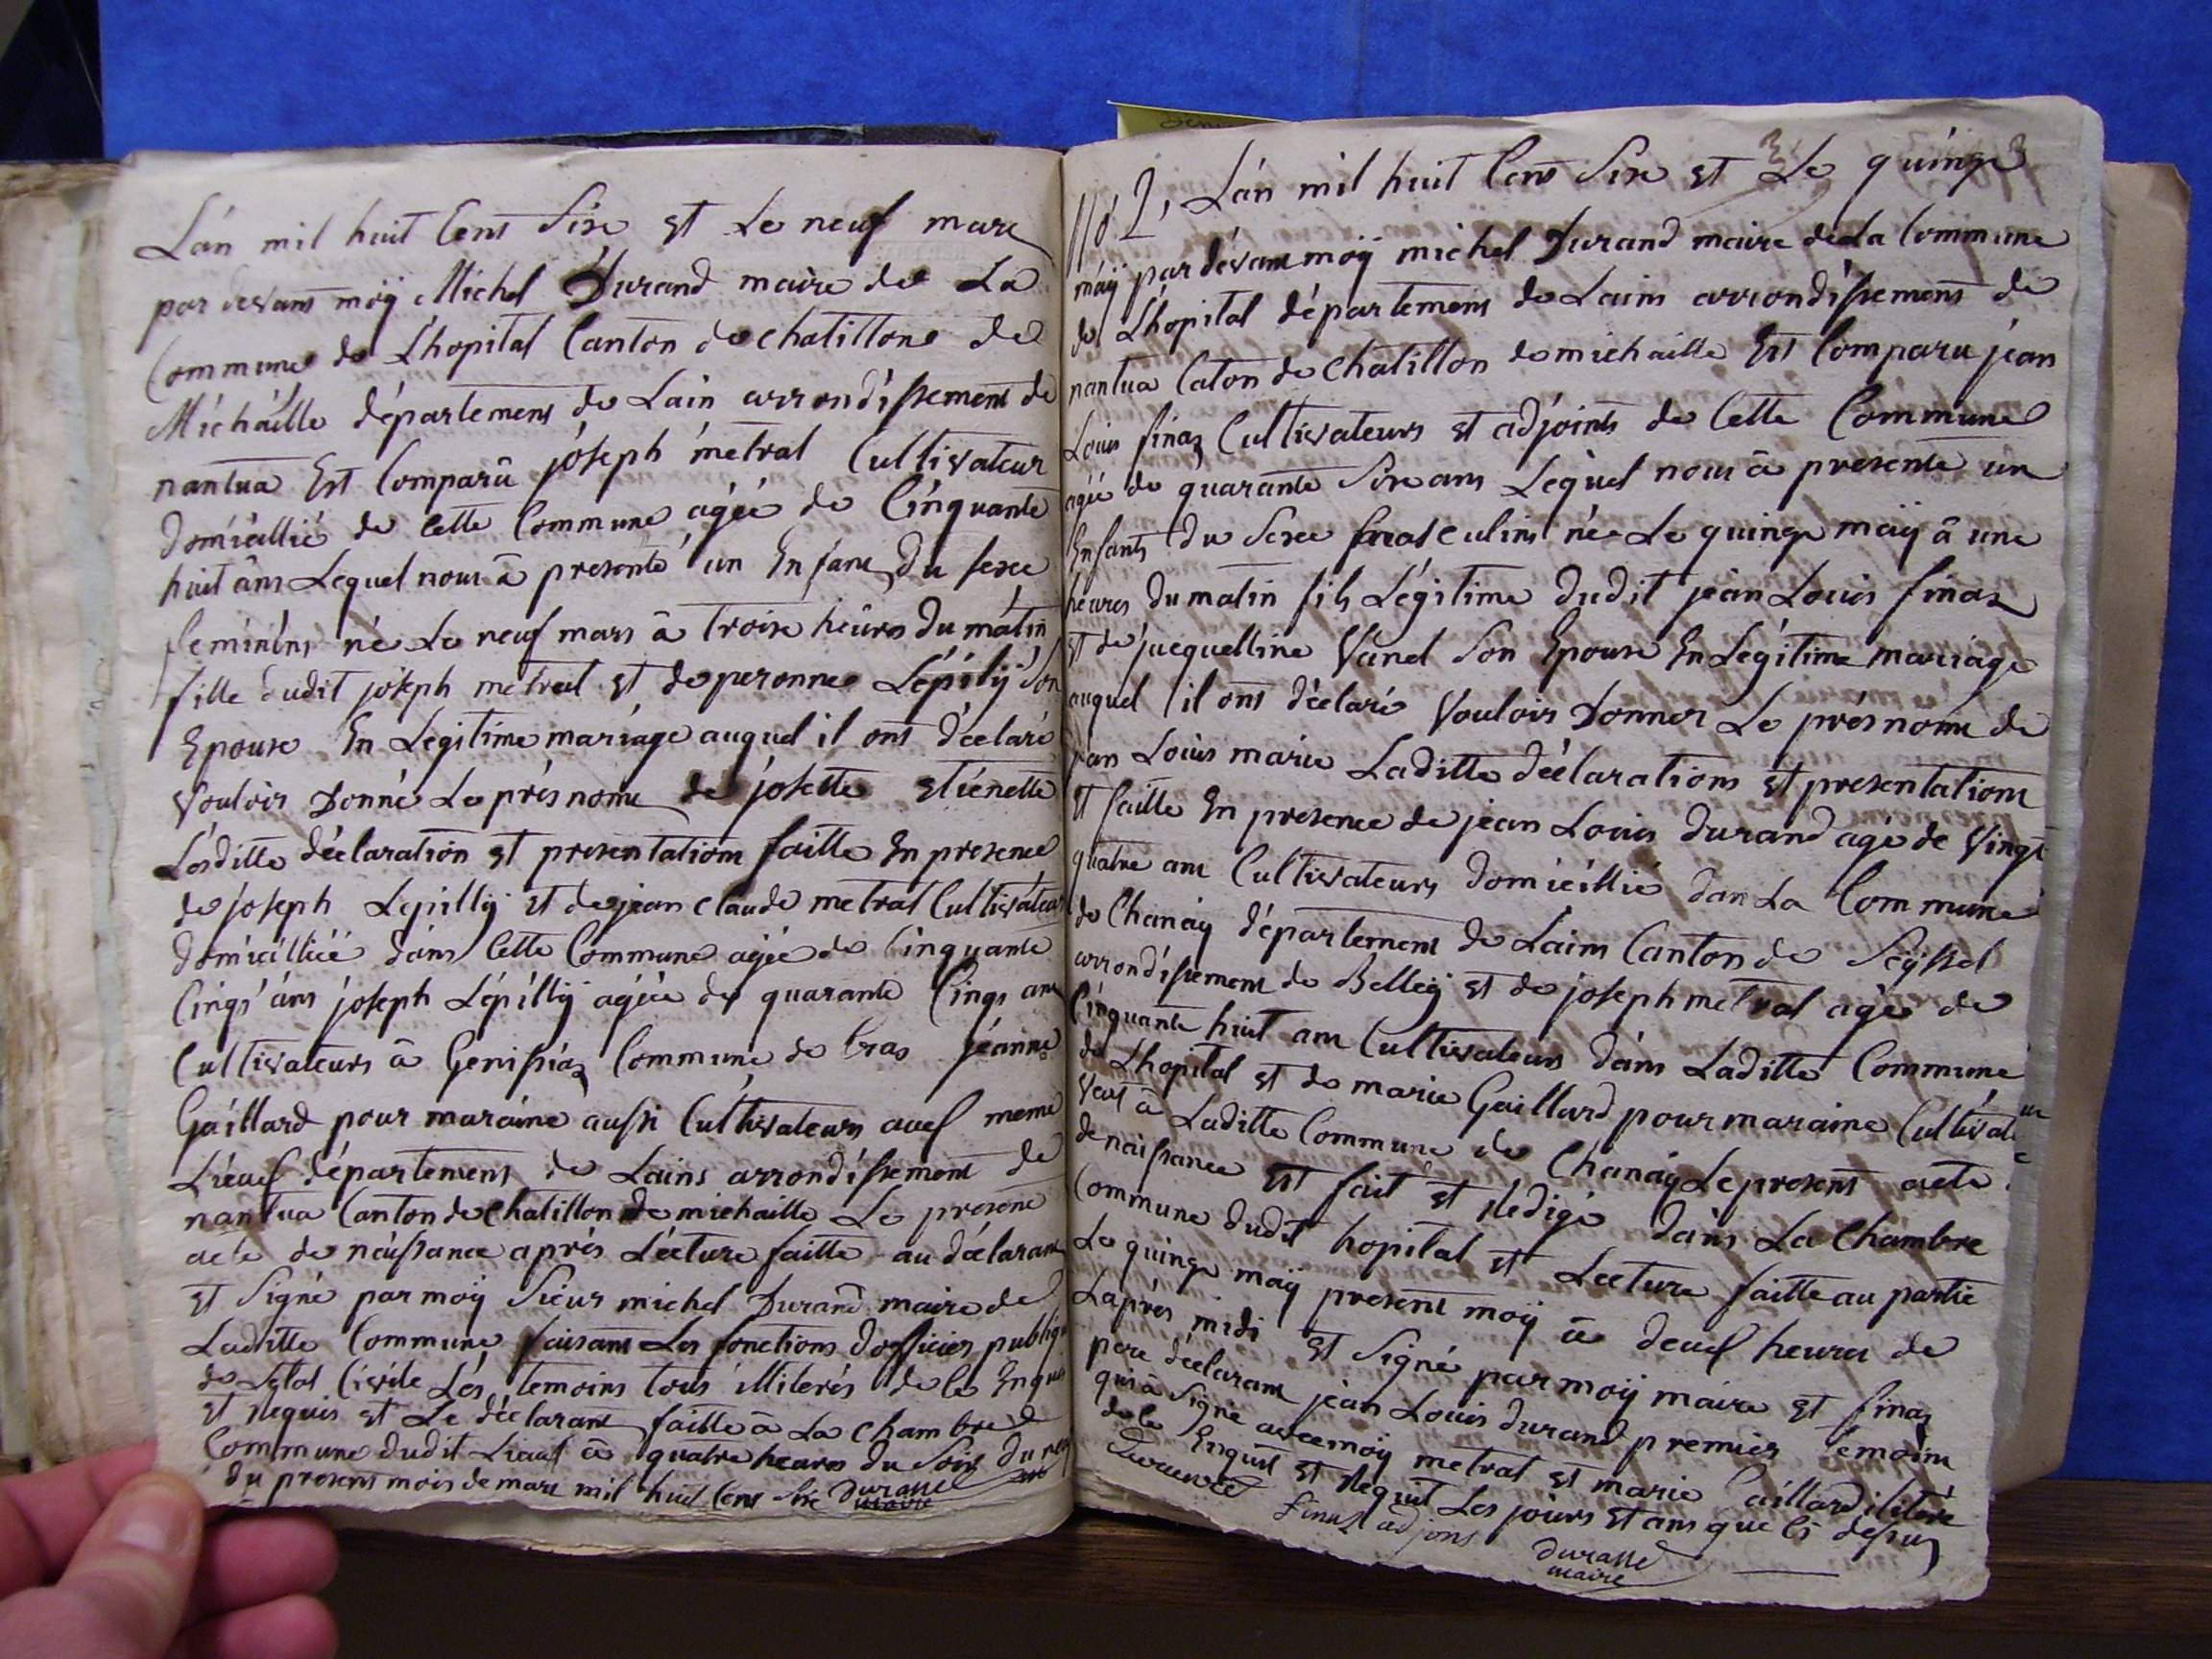 Lán mil huit Cent Sixe et Le neuf mars
par devant moÿ Michel Durand maire de La
Commune de Lhopital Canton de chatillone de
Michaille département de Lain arrondissement de
nantua Est Comparû joseph métral Cultivateur
domicillié de Cette Commune agée de Cinquante
huit âns Lequel nous â presenté un Enfant du sexe
feminins né Le neuf mars â troise heures du mâtin
fille dudit joseph metral et de peronne Lépilÿ son
Epouse En Legitime mariage auquel il ont déclaré
Vouloir Donné Le présnome de josette etiénette
Laditte déclaration et presentations faitte En presence
de joseph Lepillÿ et de jean claude metral Cultivateur
domicilliéé dans Cette Commune agée de Cinquante
Cinqs âns joseph Lépillÿ agée de quarante Cinqs ans
Cultivateurs â Genissiaz Commune de Cras jéanne
Gaillard pour maraine aussi Cultivateurs auf meme
Lieuf département de Lains arrondissement de
nantua Canton de chatillon de michaille Le present
acte de naissance aprés Lécture faitte au déclarant
et Signé par moÿ Sieur michel Durand maire de
Laditte Commune faisant Les fonctions dofficier publique
de Letat Civile Lés temoins tous illiterés de Ce Enquis
et Requis et Le déclarant faitte â La chambre de
Commune dudit Lieuf â quatre heures du Soir du neuf
du present mois de mars mil huit Cent Sixe Durand
maire
No 2, Lán mil huit Cent Sixe et Le quinze
máÿ par dévant moÿ michel Durand maire de La Commune
de Lhopital département de Lains arrondissement de
nantua Caton de chatillon de michaille Est Comparu jéan
Louis finaz Cultivateurs et adjoints de Cette Commune
agée de quarante Sixe ans Lequel nous â presenté un
Enfants du Sexe masculins né Le quinze máÿ â une
heures du matin fils Légitime dudit jéan Louis finaz
et de jacquelline Vanel Son Epouse En Légitime mariage
auquel il ont déclaré Vouloir Donner Le présnome de
jean Louis marie Laditte déclarations et presentations
et faitte En presence de jéan Louis durand agé de Vingt
quatre ans Cultivateurs domicillié dan La Commune
de Chanáÿ département de Lains Canton de Seÿssel
arrondissement de Belleÿ et de joseph metral agée de
Cinquante huit ans Cultivateurs dâns Laditte Commune
de Lhopital et de marie Gaillard pour maraine Cultivat
â Laditte Commune de Chanáÿ Le present acte
de naissance Est fait et Redigé dâns La Châmbre
Commune dudit hopital et Lecture faitte au partie
Le quinze máÿ present moÿ â deuf heures de
Laprés midi et Signé par moÿ maire et finaz
pere déclarant jéan Louis durand premier témoins
qui â Signé avec moÿ metral et marie Gaillard ilitéré
de Ce Enquit et Requit Les jours et ans que Ci dessus
Durand
finaz adjoint
Durand
maire